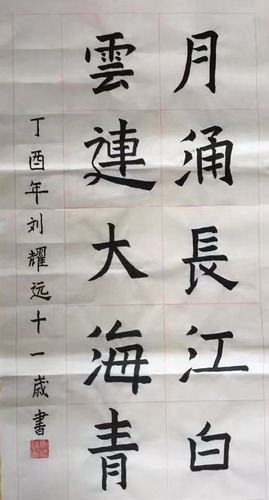 月涌長江白
雲連大海青
丁酉年刘耀远十一歲書